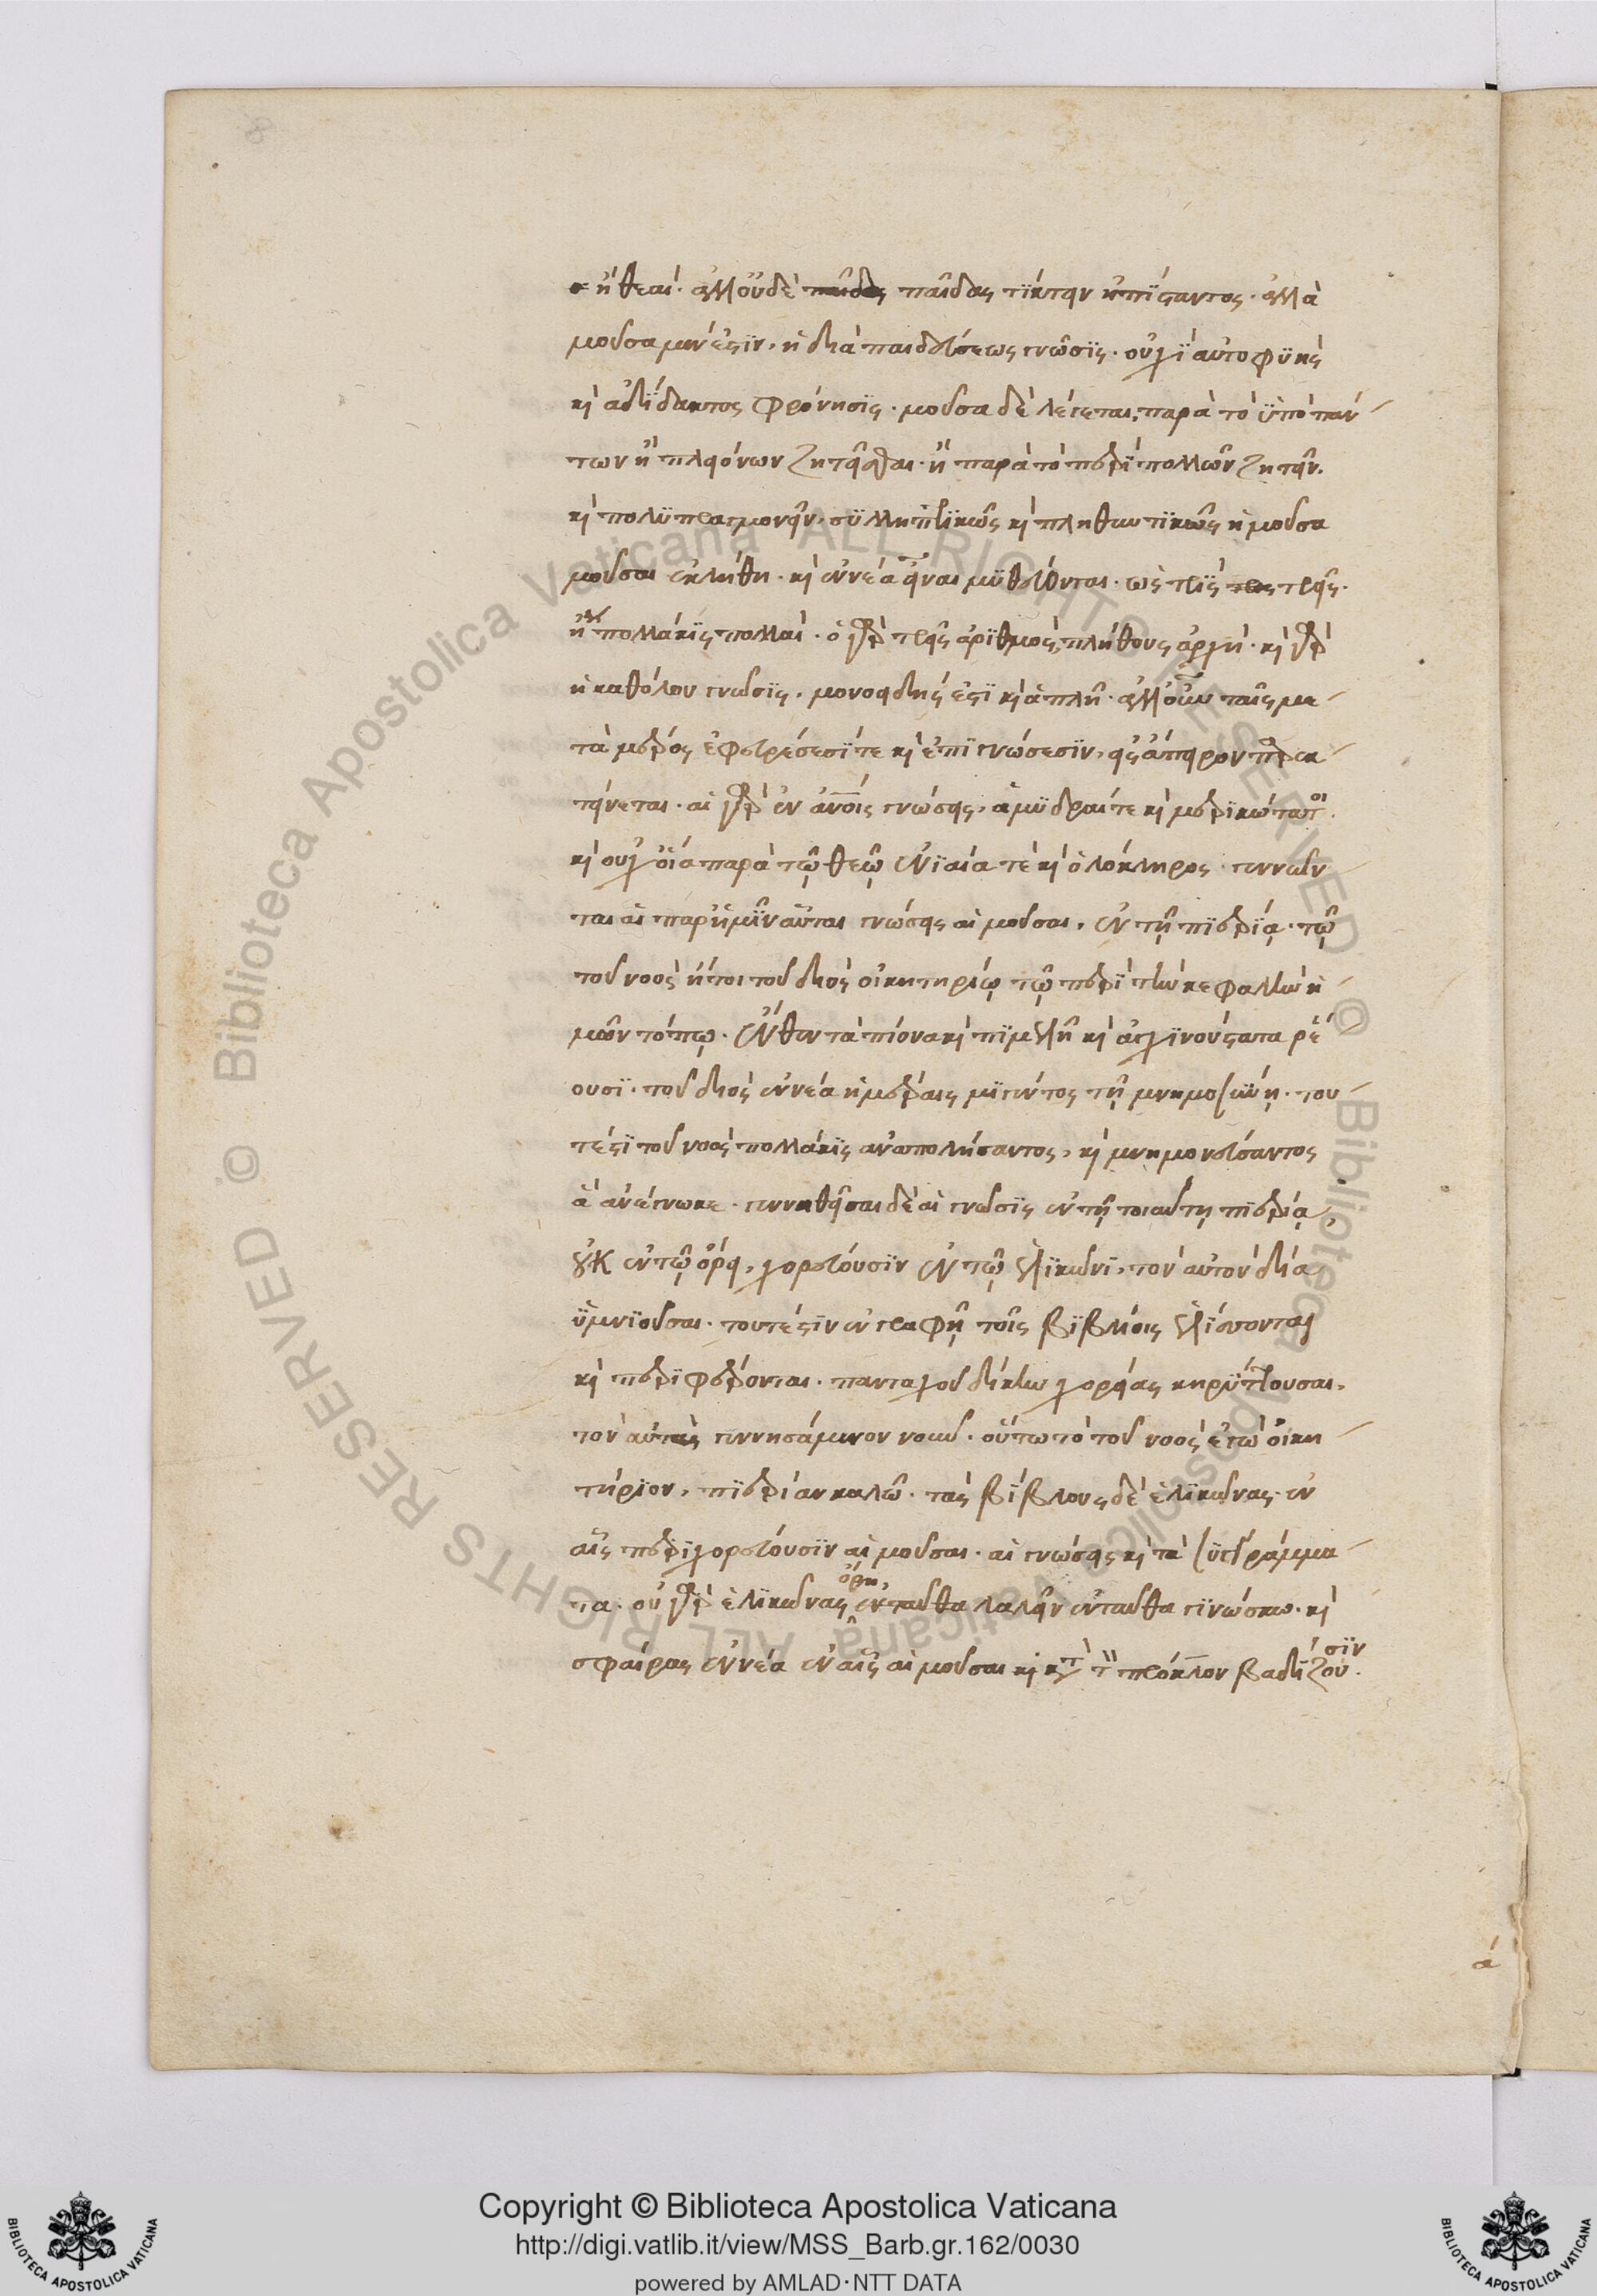 ἢ θεαί· ἀλλ' οὐδὲ παῖδας τίκτειν ἠπίσταντος· ἀλλὰ
μοῦσα μέν ἐστιν, ἡ διὰ παιδεύσεως γνῶσις· οὐχὶ αὐτοφυὴς
καὶ ἀδίδακτος φρόνησις· μοῦσα δὲ λέγεται, παρὰ τὸ ὑπὸ πάν
των ἢ πλειόνων ζητεῖσθαι· ἢ παρὰ τὸ περὶ πολλῶν ζητεῖν·
καὶ πολυπραγμονεῖν, συλληπτικῶς καὶ πληθυντικῶς ἡ μοῦσα
μοῦσαι ἐκλήθη· καὶ ἐννέα εἶναι μυθεύονται· ὡς τρὶς τρεῖς·
ἢ πολλάκις πολλαί· ὁ γὰρ τρεῖς ἀριθμός, πλήθους ἀρχή· καὶ γὰρ
ἡ καθόλου γνῶσις, μονοειδής ἐστι καὶ ἁπλῆ· ἀλλ' οὖν ταῖς με
τὰ μέρος ἐφευρέσεσί τε καὶ ἐπιγνώσεσιν, εἰς ἄπειρον παρεκ
τείνεται· αἱ γὰρ ἐν ἀνοις γνώσεις, ἀμυδραί τε καὶ μερικώταται·
καὶ οὐχ οἵα παρὰ τῷ θεῷ ἐνιαία τὲ καὶ ὁλόκληρος· γεννῶν
ται αἱ παρ' ἡμῖν αὗται γνώσεις αἱ μοῦσαι, ἐν τῇ πιερίᾳ· τῷ
τοῦ νοὸς ἤτοι τοῦ διὸς οἰκητηρίῳ τῷ περὶ τὴν κεφαλὴν ἡ
μῶν τόπῳ· ἔνθεν τὰ πίονα καὶ πιμελῆ καὶ ἀγχίνούστατα ῥέ
ουσι· τοῦ διὸς ἐννέα ἡμέραις μιγέντος τῇ μνημοσύνῃ· του
τέστι τοῦ νοὸς πολλάκις ἀναπολήσαντος, καὶ μνημονεύσαντος
ἃ ἀνέγνωκε· γεννηθεῖσαι δὲ αἱ γνῶσις ἐν τῇ τοιαύτῃ πιερίᾳ,
οὐκ ἐν τῷ ὄρει, χορεύουσιν ἐν τῷ ἑλικῶνι, τὸν αὐτὸν δία
ὑμνιοῦσαι· τουτέστιν ἐν γραφῇ τοῖς βιβλίοις ἑλίσσονται
καὶ περιφέρονται· πανταχοῦ δίκην χορείας κηρύττουσαι,
τὸν αὐτὰς γεννησάμενον νοῦν· οὕτω τὸ τοῦ νοὸς ἐγὼ οἰκη
τήριον, πιερίαν καλῶ· τὰς βίβλους δὲ ἑλικῶνας· ἐν
αἷς περιχορεύουσιν αἱ μοῦσαι· αἱ γνώσεις καὶ τὰ συγγράμμα
τα· οὐ γὰρ ἑλικῶνας ὄρη, ἐνταῦθα λαλεῖν ἐνταῦθα γινώσκω· καὶ
σφαίρας ἐννέα ἐν αἷς αἱ μοῦσαι καὶ κατὰ τὸν πρόκλον βαδίζουσιν·
ἀ
Copyright © Biblioteca Apostolica Vaticana
http://digi.vatlib.it/view/MSS_Barb.gr.162/0030
powered by AMLAD·NTT DATA